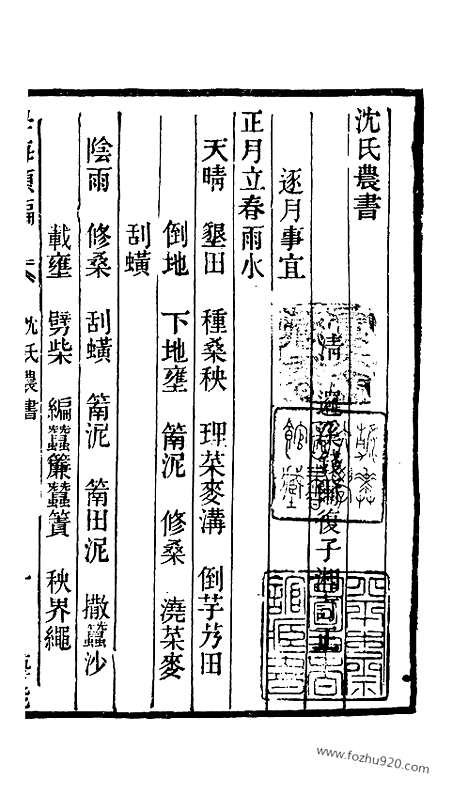 沈氏農書
清 復子
逐月事宜
正月立春雨水
天晴 墾田 種桑秧 理菜麥溝 倒芋艿田
倒地 下地壅 罱泥 修桑 澆菜麥
刮蟥
陰雨 修桑 刮蟥 罱泥 罱田泥 撒蠶沙
載壅 劈柴 編蠶簾蠶簀 秧界繩
沈氏農書
www.fozhu920.com